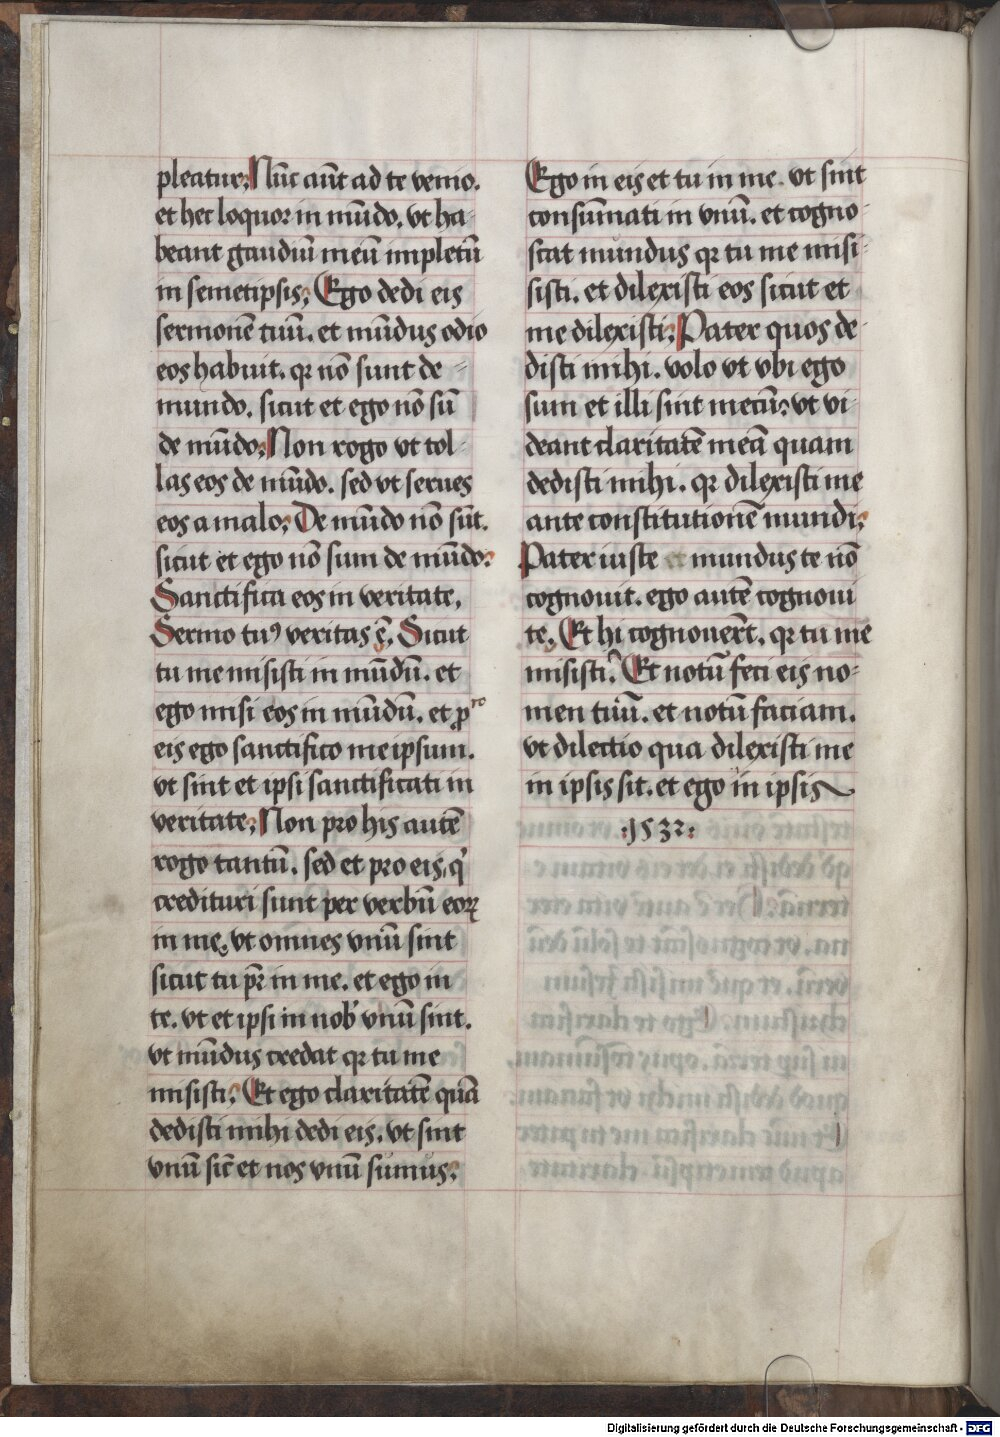 pleatur; Nūc aūt ad te venio.
et hec loquor in mūdo. vt ha-
beant gaudiū meū impletū
in semetipsis; Ego dedi eis
sermonē tuū. et mūdus odio
eos habuit. qr nō sunt de
mundo. sicut et ego nō sū
de mūdo; Non rogo vt tol-
las eos de mūdo. sed vt serues
eos a malo; De mūdo nō sūt.
sicut et ego nō sum de mūdo;
Sanctifica eos in veritate.
Sermo tuꝰ veritas ē. Sicut
tu me misisti in mūdū. et
ego misi eos in mūdū. et p ro
eis ego sanctifico meipsum.
vt sint et ipsi sanctificati in
veritate; Non pro his autē
rogo tantū. sed et pro eis, q'
credituri sunt per verbū eoꝝ
in me, vt omnes vnū sint
sicut tu pr̄ in me. et ego in
te. vt et ipsi in nob' vnū sint.
vt mūdus credat qr tu me
misisti; Et ego claritatē quā
dedisti mihi dedi eis. vt sint
vnū sic̄ et nos vnū sumus;
Ego in eis et tu in me. vt sint
consūmati in vnū. et cogno-
scat mundus qr tu me misi-
sisti. et dilexisti eos sicut et
me dilexisti; Pater quos de-
disti mihi. volo vt vbi ego
sum et illi sint mecū; vt vi-
deant claritatē meā quam
dedisti mihi. qr dilexisti me
ante constitutionē mundi;
Pater iuste et mundus te nō
cognouit. ego autē cognoui
te. Et hi cognouer̄t. qr tu me
misisti; Et notū feci eis no-
men tuū. et notū faciam.
vt dilectio qua dilexisti me
in ipsis sit. et ego in ipsis
:1532:
Digitalisierung gefördert durch die Deutsche Forschungsgemeinschaft - DFG